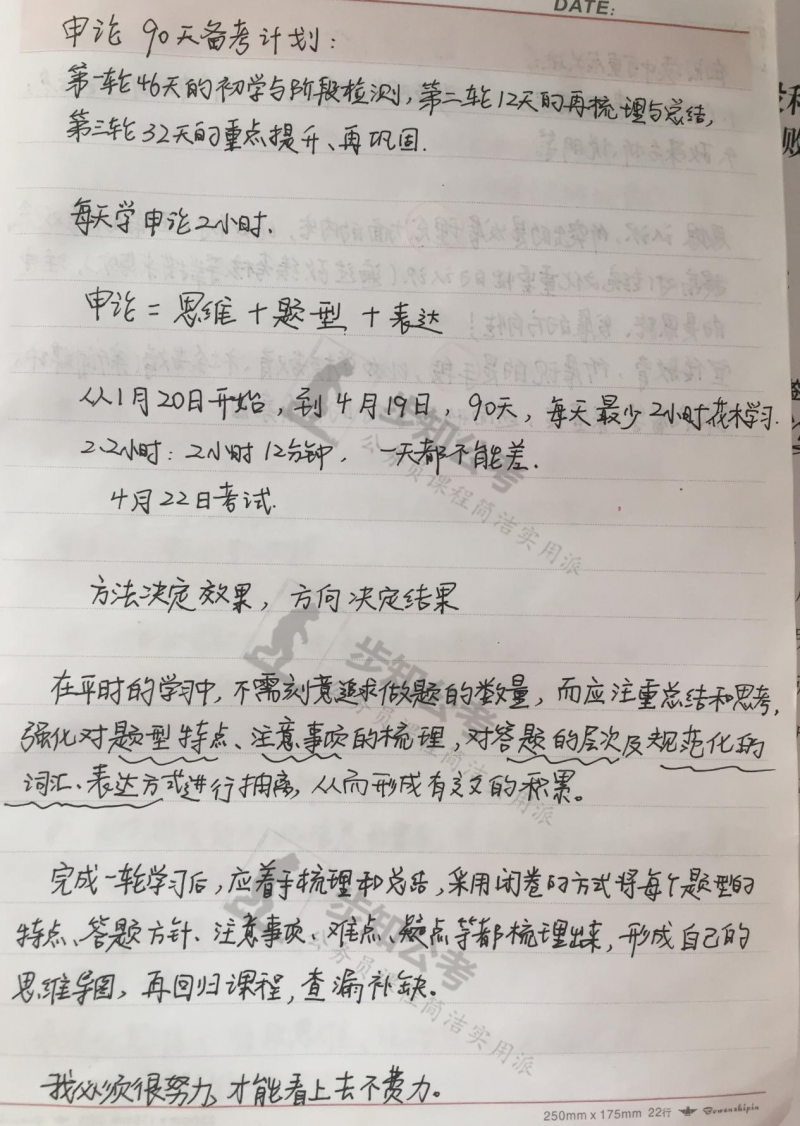 DATE:
申论 90天备考计划:
第一轮46天的初学与阶段检测,第二轮12天的再梳理与总结,
第三轮32天的重点提升、再巩固.
每天学申论2小时.
申论 = 思维 + 题型 + 表达
从1月20日开始,到4月19日,90天,每天最少2小时花木学习.
2.2小时:2小时12分钟. 一天都不能差.
4月22日考试.
方法决定效果,方向决定结果
在平时的学习中,不需刻意追求做题的数量,而应注重总结和思考,
强化对题型特点、注意事项的梳理,对答题的层次及规范化的
词汇、表达方式进行抽离,从而形成有意义的积累。
完成一轮学习后,应着手梳理和总结,采用闭卷的方式将每个题型的
特点、答题方针、注意事项、难点、疑点等都梳理出来,形成自己的
思维导图,再回归课程,查漏补缺。
我必须很努力,才能看上去不费力。
步知公考
公务员课程简洁实用派
步知公考
公务员课程简洁实用派
步知公考
公务员课程简洁实用派
250mm x 175mm 22行